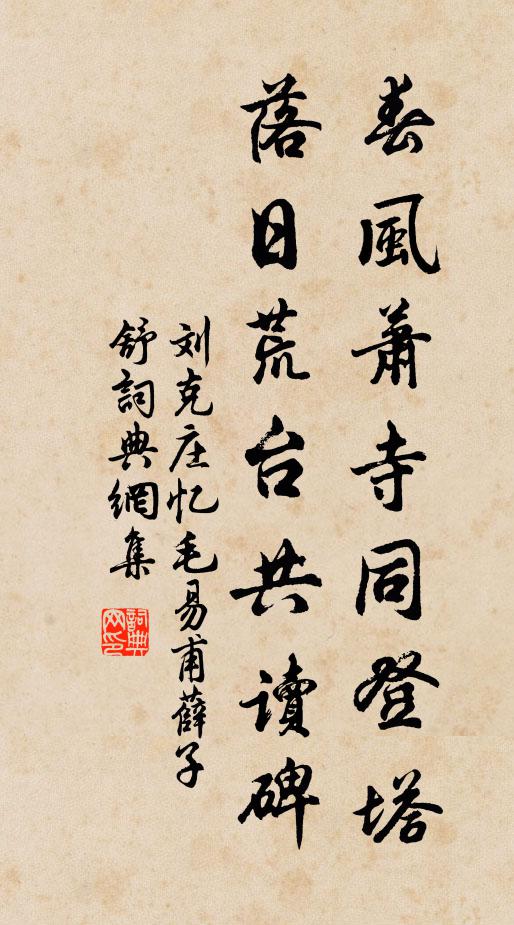 春風蕭寺同登塔
落日荒台共讀碑
刘克庄忆毛易甫薛子
舒詞典網集
詞典网印